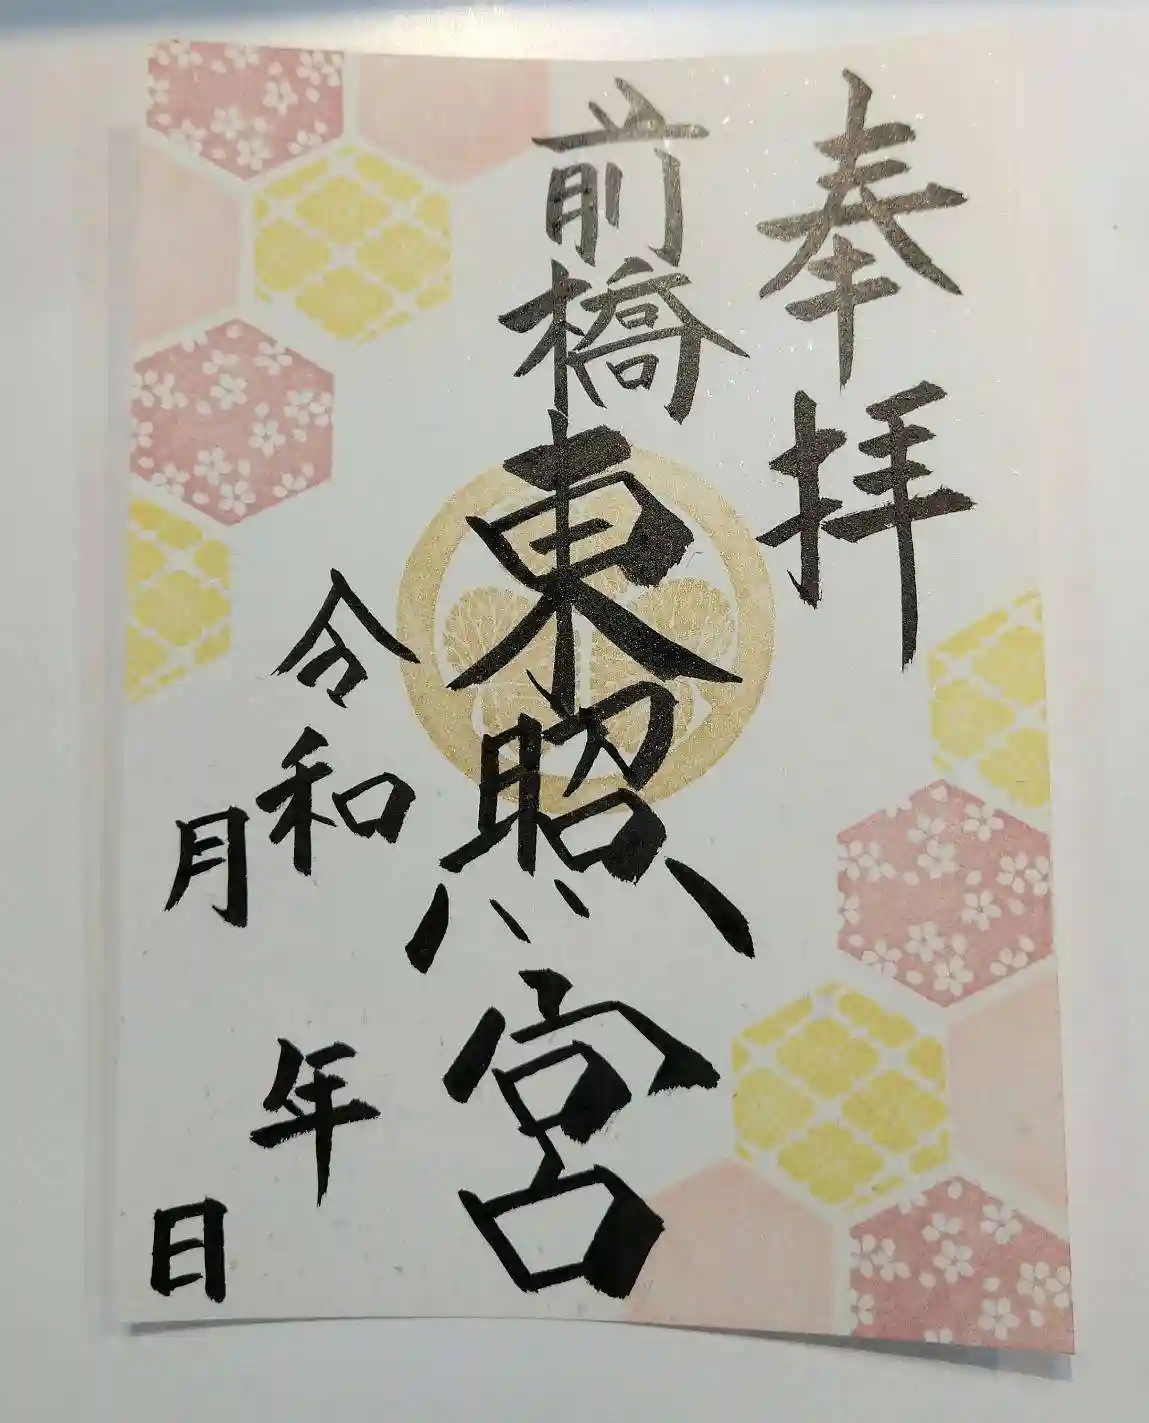 奉拝
前橋東照宮
令和 年
月 日